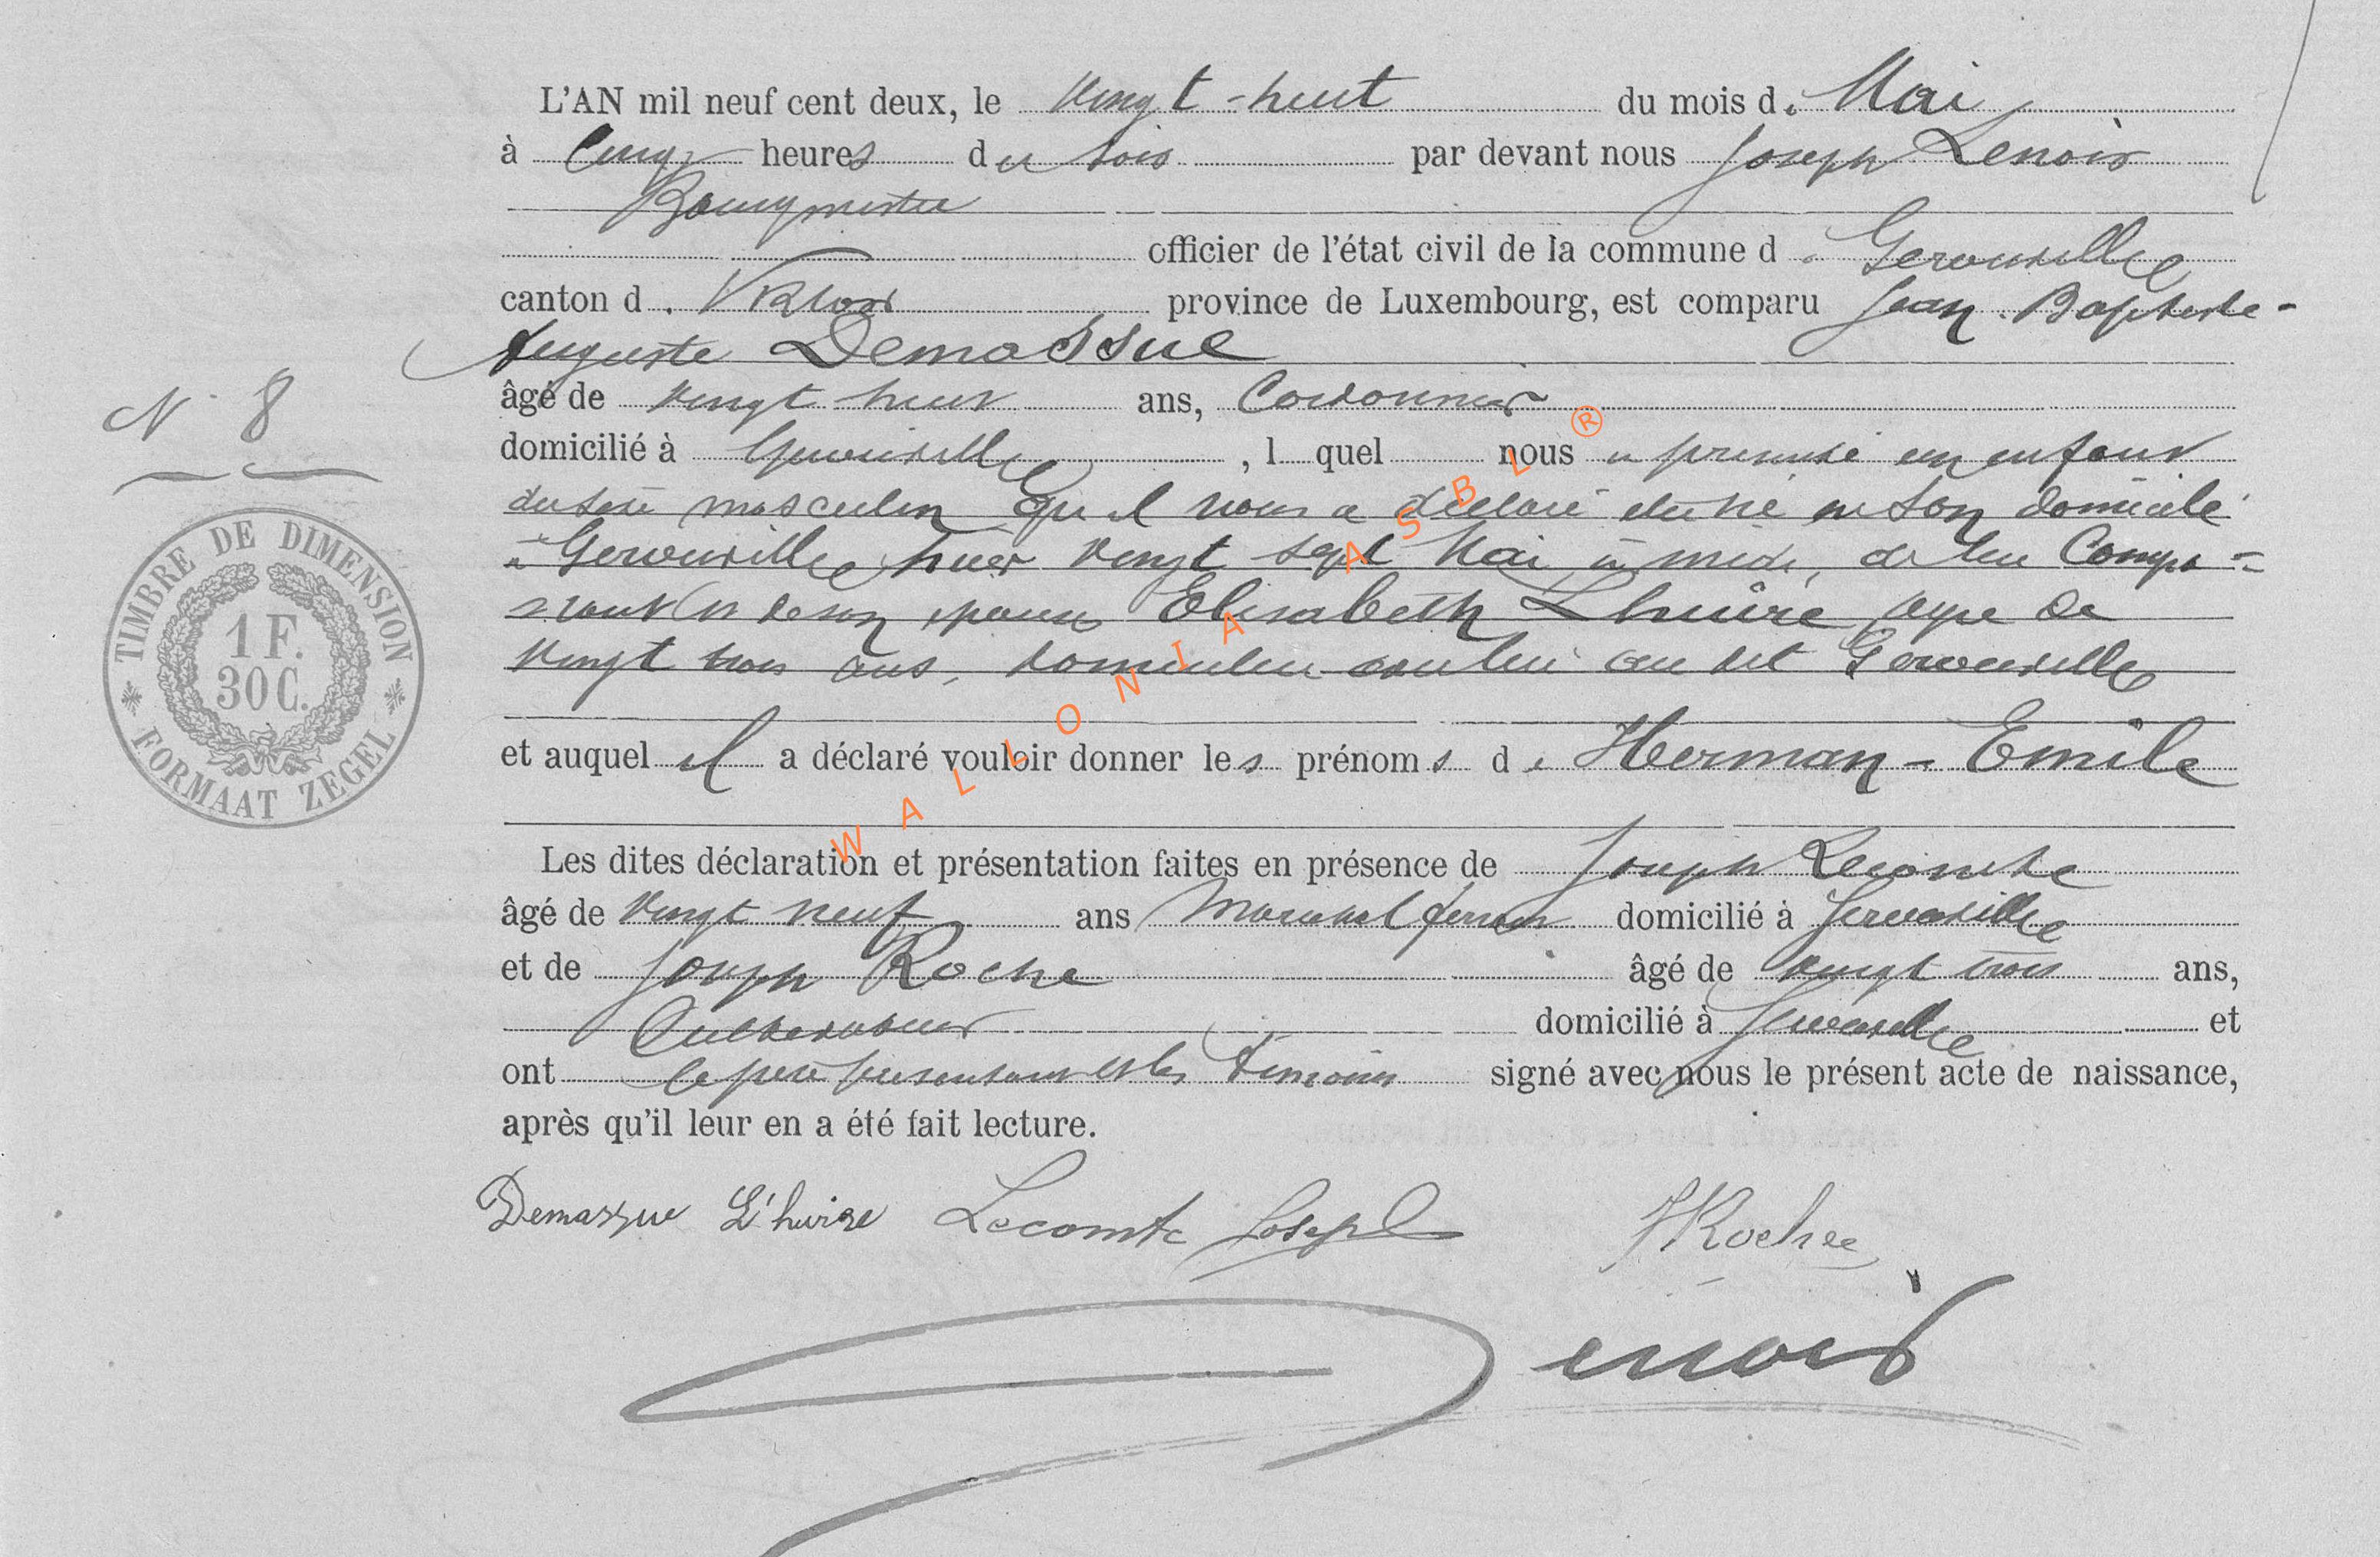 L'AN mil neuf cent deux, le vingt-huit du mois de Mai
à Cinq heures du soir par devant nous Joseph Lenoir
Bourgmestre
officier de l'état civil de la commune de Gerouville
canton de Virton province de Luxembourg, est comparu Jean-Baptiste-
Auguste Demassue
N° 8
âgé de vingt huit ans, Cordonnier
domicilié à Gerouville, lequel nous a présenté un enfant
du sexe masculin qu'il nous a déclaré être né en son domicile
à Gerouville hier vingt sept Mai à midi, de lui Compa=
rant et de son épouse Elisabeth Lhuire âgée de
vingt trois ans, domiciliée avec lui au dit Gerouville
et auquel il a déclaré vouloir donner les prénoms de Herman-Emile
Les dites déclaration et présentation faites en présence de Joseph Lecomte
âgé de vingt neuf ans Maréchal ferrant domicilié à Gerouville
et de Joseph Roche âgé de vingt trois ans,
Cultivateur domicilié à Gerouville et
ont le père présentant et les témoins signé avec nous le présent acte de naissance,
après qu'il leur en a été fait lecture.
Demassue L'huire Lecomte Joseph J Roche
Lenoir
TIMBRE DE DIMENSION
1 F.
30 C.
FORMAAT ZEGEL
WALLONIA ASBL ®